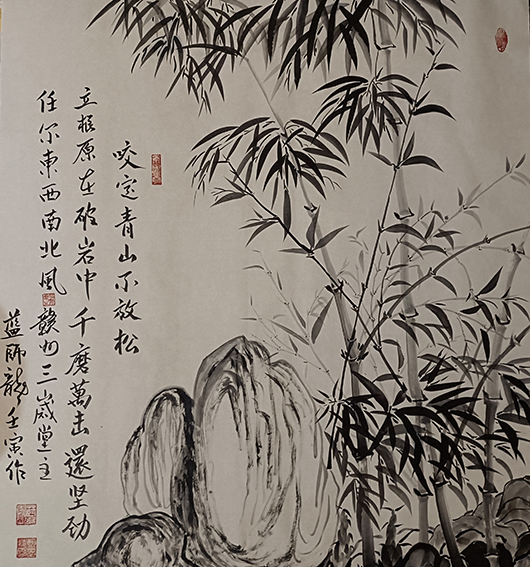 咬定青山不放松
立根原在破岩中千磨萬击還坚劲
任尔東西南北风赣州三岁堂主
蓝师龙壬寅作